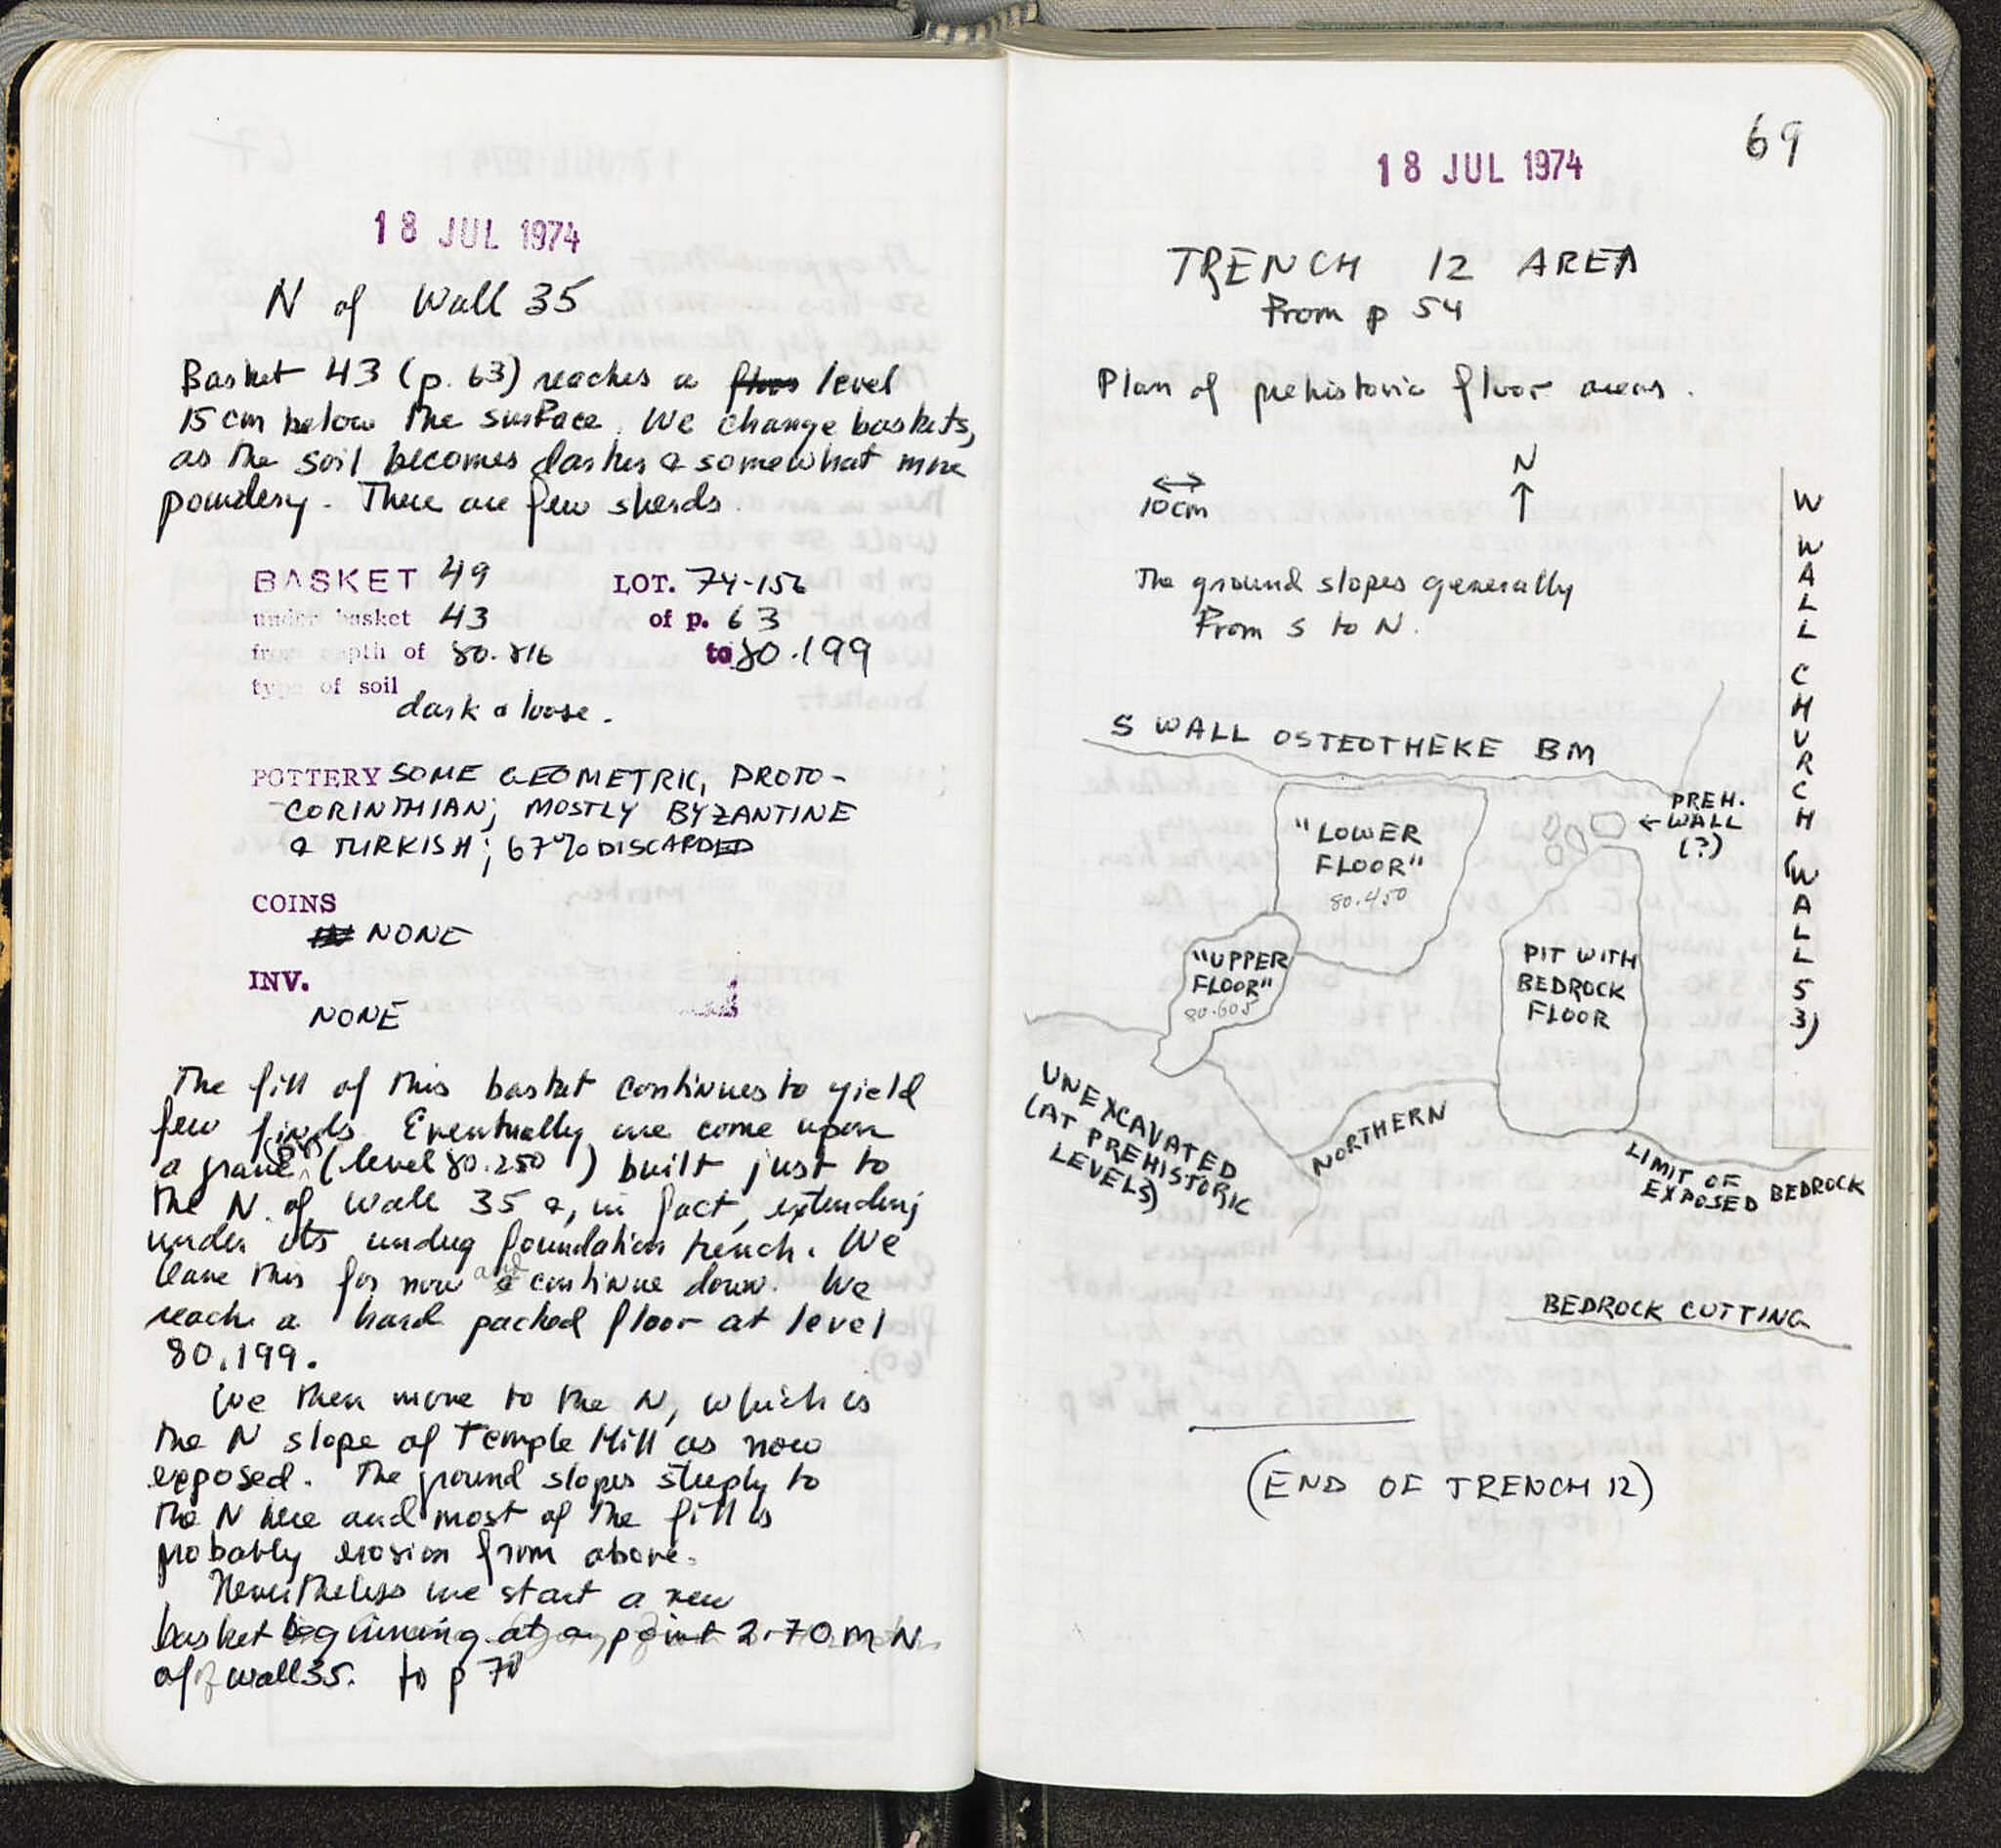 18 JUL 1974
N of Wall 35
Basket 43 (p. 63) reaches a floor level
15 cm below the surface. We change baskets,
as the soil becomes darker & somewhat more
powdery. There are few sherds.
BASKET 49 LOT. 74-156
under basket 43 of p. 63
from depth of 80.816 to 80.199
type of soil
dark & loose.
POTTERY SOME GEOMETRIC, PROTO-
CORINTHIAN; MOSTLY BYZANTINE
& TURKISH; 67% DISCARDED
COINS
NONE
INV.
NONE
The fill of this basket continues to yield
few finds. Eventually we come upon
a grave (level 80.250) built just to
the N. of Wall 35 &, in fact, extending
under its undug foundation trench. We
leave this for now and continue down. We
reach a hard packed floor at level
80.199.
We then move to the N, which is
the N slope of Temple Hill as now
exposed. The ground slopes steeply to
the N here and most of the fill is
probably erosion from above.
Nevertheless we start a new
basket beginning at a point 2.70 m N
of wall 35. to p 70
69
18 JUL 1974
TRENCH 12 AREA
From p 54
Plan of prehistoric floor areas.
N
10cm
The ground slopes generally
From S to N.
W WALL CHURCH (WALL 53)
S WALL OSTEOTHEKE BM
"LOWER
FLOOR"
80.450
PREH.
WALL
(?)
"UPPER
FLOOR"
80.605
PIT WITH
BEDROCK
FLOOR
UNEXCAVATED
(AT PREHISTORIC
LEVELS)
NORTHERN
LIMIT OF
EXPOSED BEDROCK
BEDROCK CUTTING
(END OF TRENCH 12)